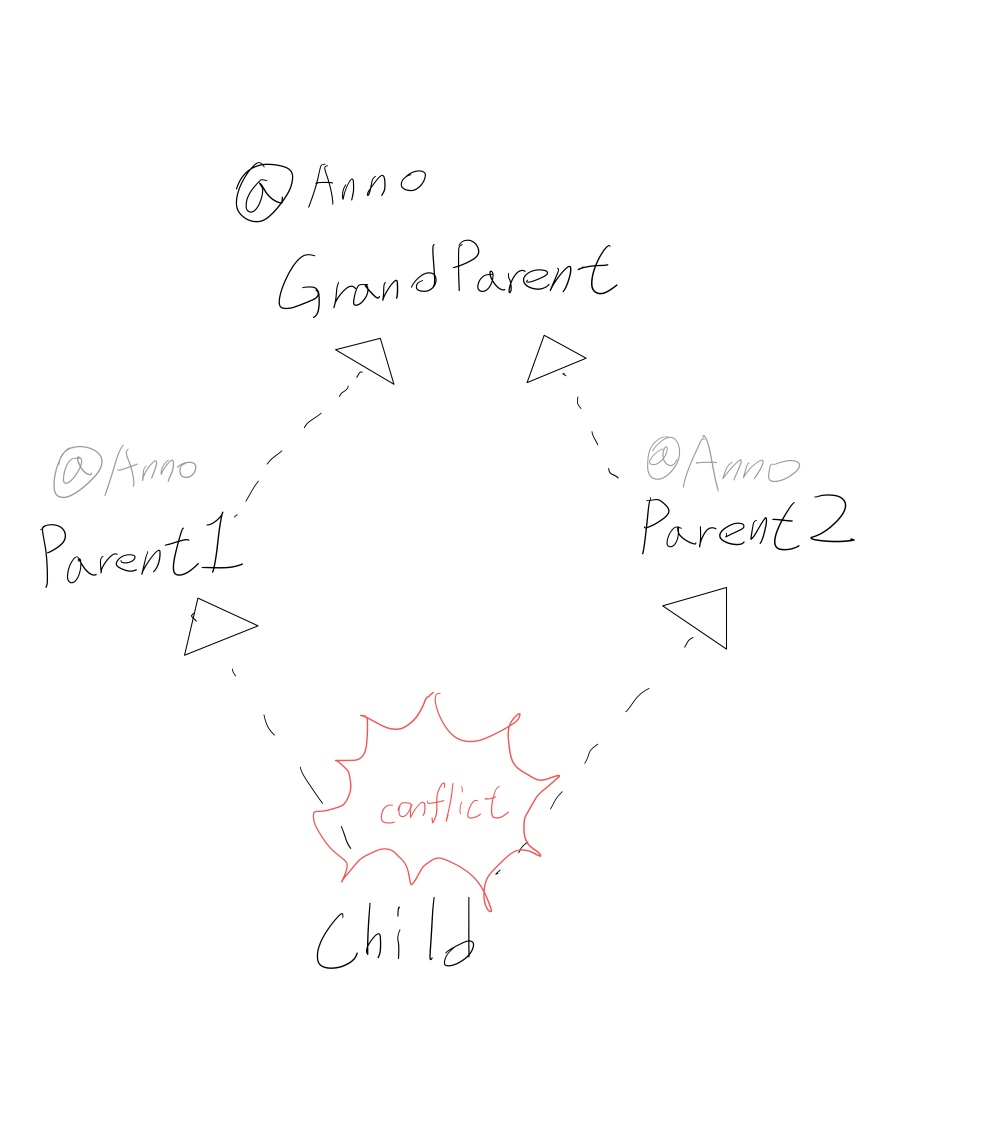 @Anno
GrandParent
@Anno
Parent1
@Anno
Parent2
conflict
Child